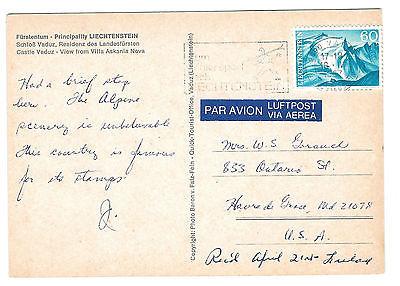 Fürstentum - Principality LIECHTENSTEIN
Schloß Vaduz, Residenz des Landesfürsten
Castle Vaduz - View from Villa Askania Nova
Had a brief stop
here. The Alpine
scenery is unbelievable
This country is famous
for its stamps
J.
Copyright: Photo Baron v. Falz-Fein - Quick-Tourist-Office, Vaduz (Liechtenstein)
LIECHTENSTEIN
LIECHTENSTEIN
60
PAR AVION LUFTPOST
VIA AEREA
Mrs. W. S.
853 Ontario St.
Havre de Grace, Md 21078
U.S.A.
Rec'd April 21st